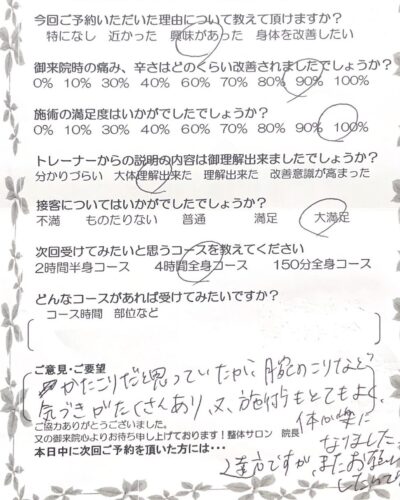 今回ご予約いただいた理由について教えて頂けますか？
特になし 近かった 興味があった 身体を改善したい
御来院時の痛み、辛さはどのくらい改善されましたでしょうか？
0% 10% 30% 40% 60% 70% 80% 90% 100%
施術の満足度はいかがでしたでしょうか？
0% 10% 30% 40% 60% 70% 80% 90% 100%
トレーナーからの説明の内容は御理解出来ましたでしょうか？
分かりづらい 大体理解出来た 理解出来た 改善意識が高まった
接客についてはいかがでしたでしょうか？
不満 ものたりない 普通 満足 大満足
次回受けてみたいと思うコースを教えてください
2時間半身コース 4時間全身コース 150分全身コース
どんなコースがあれば受けてみたいですか？
コース時間 部位など
ご意見・ご要望
かたこりだと思っていたが、腕のこりなど
気づきがたくさんあり、又、施術もとてもよく、
体が楽に
なりました。
ご協力ありがとうございました。
又の御来院心よりお待ち申し上げております！整体サロン 院長
本日中に次回ご予約を頂いた方には・・・
遠方ですが、またお願い
したいで